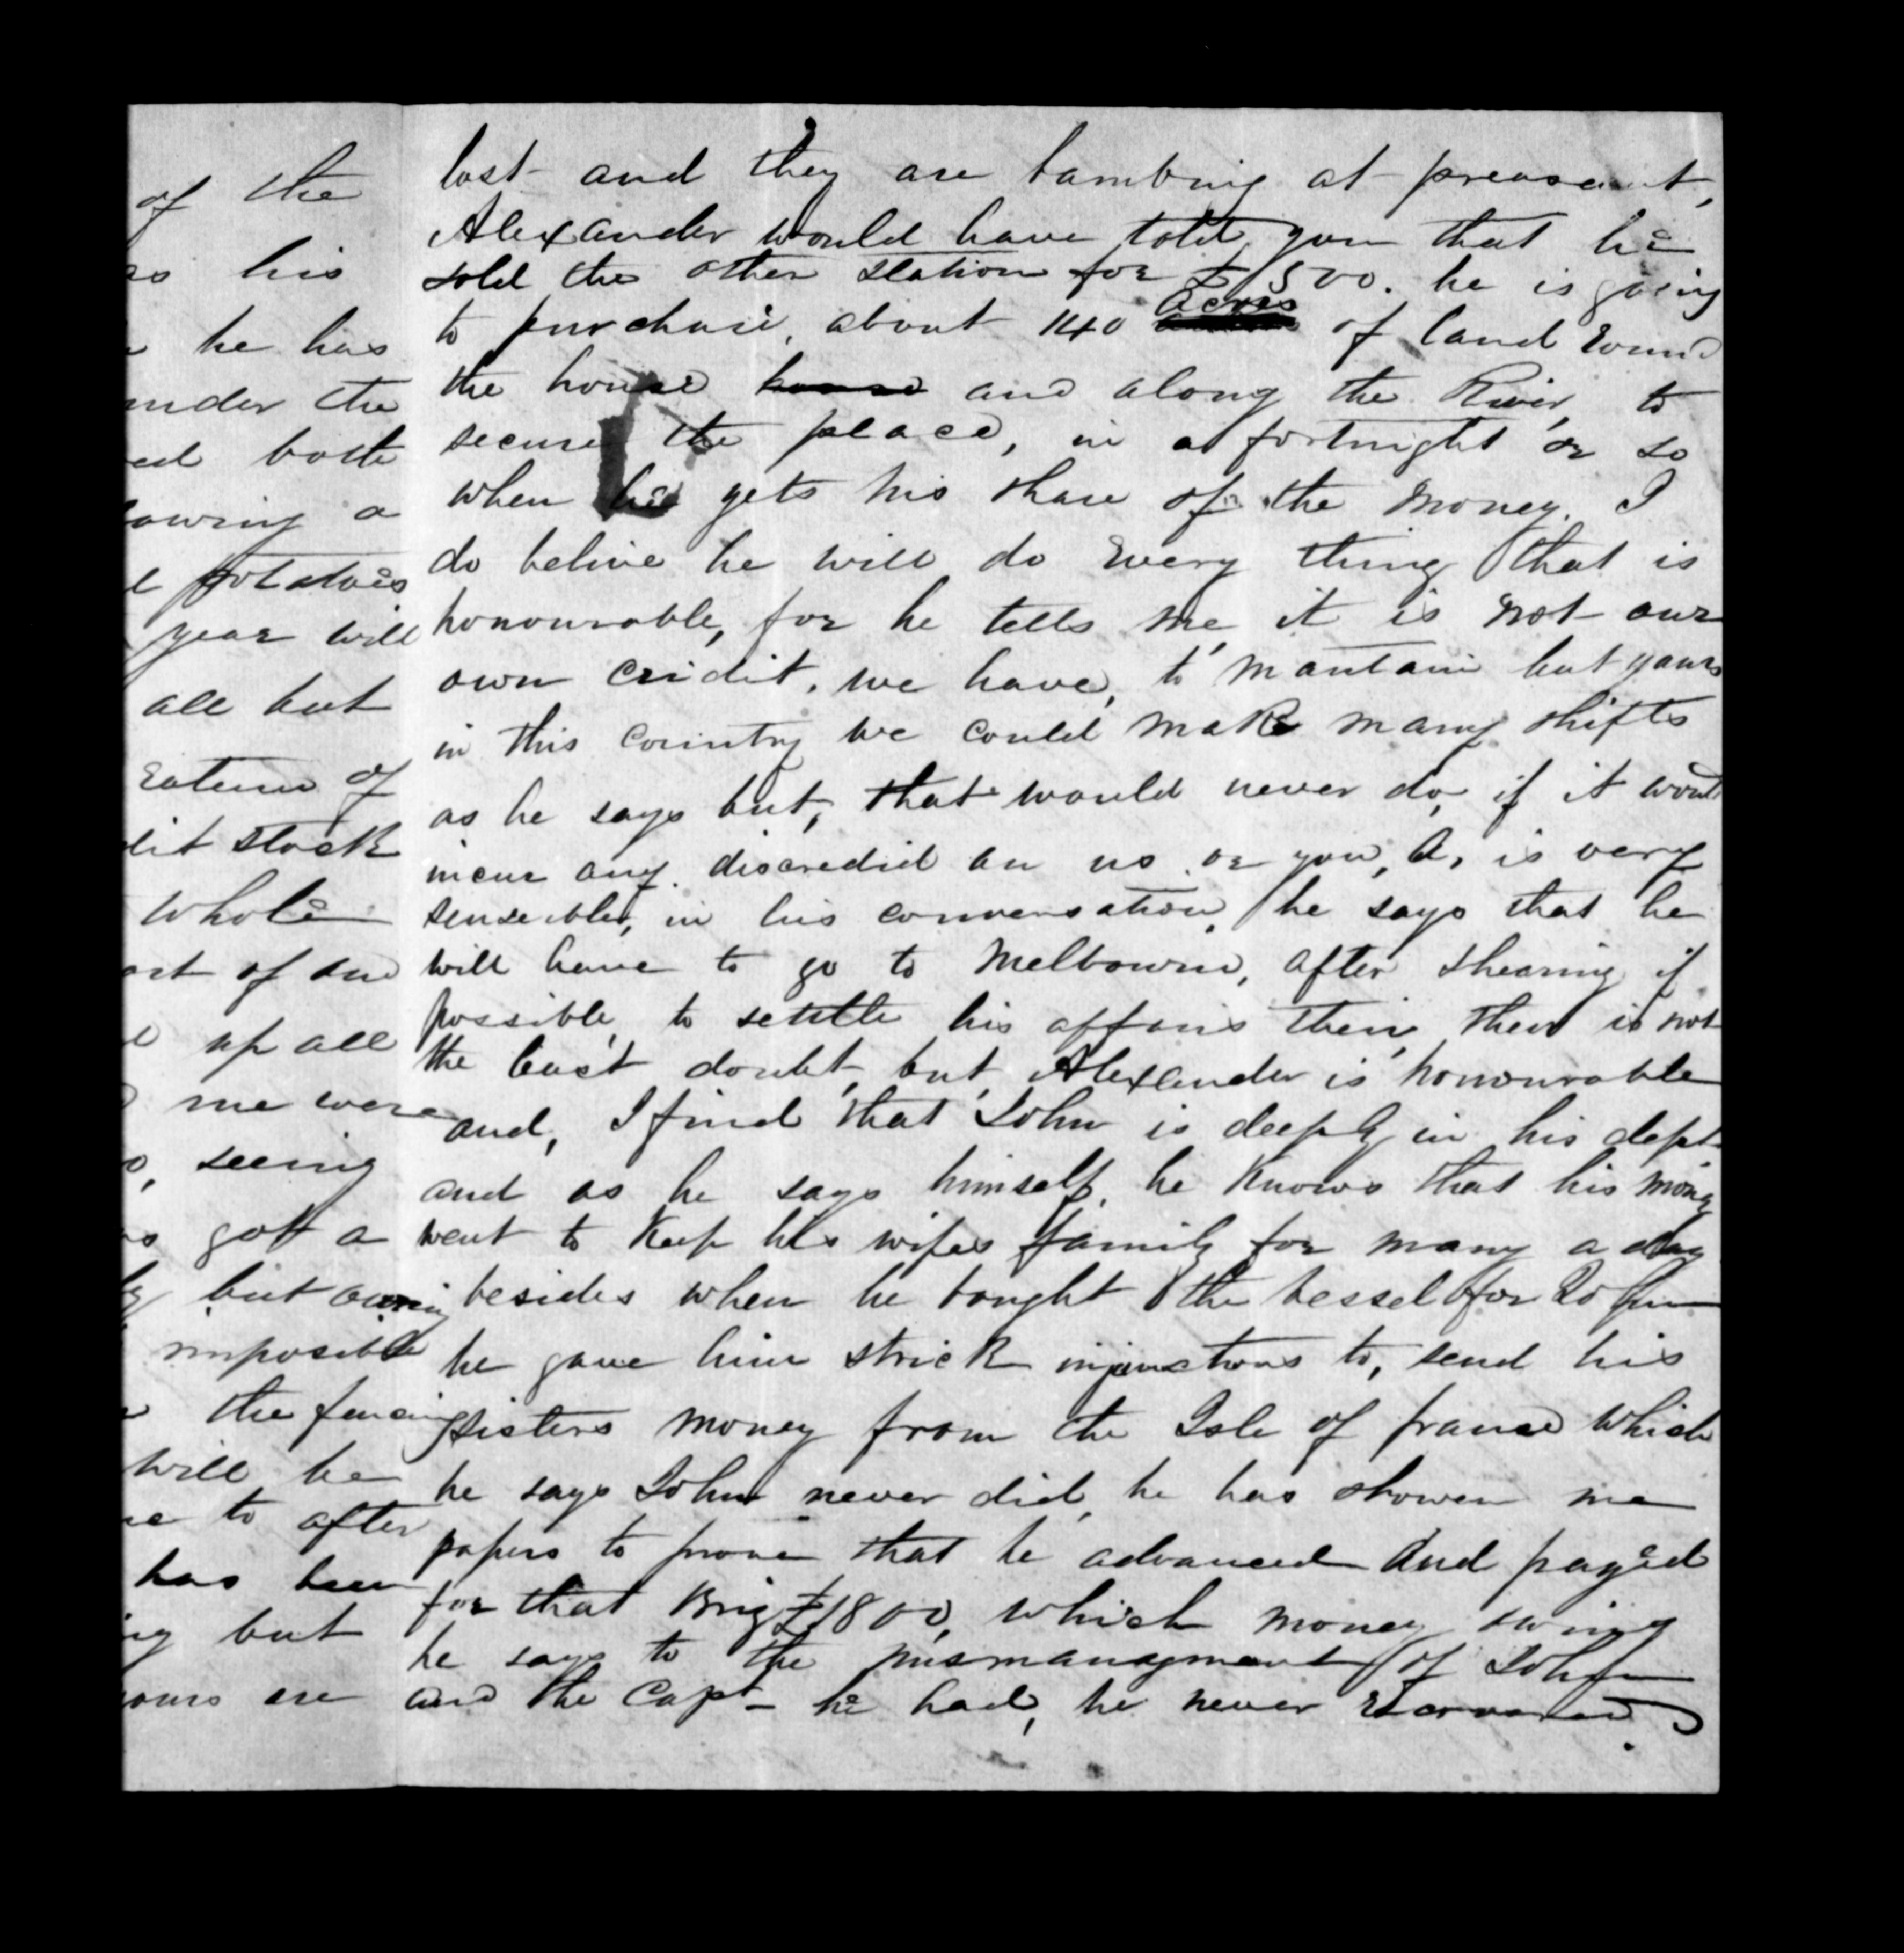 of the
his
he has
under the
both
owing a
potatoes
year will
all but
of
stock
whole
of
up all
me were
seeing
got a
but owing
imposible
the fencing
will be
to after
has been
but
are
lost and they are lambing at preasent,
Alexander would have told you that he
sold the other station for £1500. he is going
to purchase, about 140 acres of land round
the house house and along the River, to
secure the place, in a fortnight or so
when he gets his share of the money. I
do belive he will do every thing that is
honourable, for he tells me, it is not our
own cridit, we have, to mantain but yours
in this country we could make many shifts
as he says but, that would never do, if it would
incur any. discredid on us or you, A, is very
senseible, in his conversation, he says that he
will have to go to Melbourne, after shearing if
possible, to settle his affairs their, their is not
the least doubt, but, Alexander is honourable
and, I find that John is deeply in his dept
and as he says himself, he knows that his money
went to keep his wifes family for many a day
besides when he bought the vessel for John
he gave him strick injunctions to, send his
sisters money from the Isle of france which
he says John never did, he has showen me
papers to prove that he advanced and payed
for that Brig £1800, which money owing
he says to the mismanagment of John
and the Capt - he had, he never